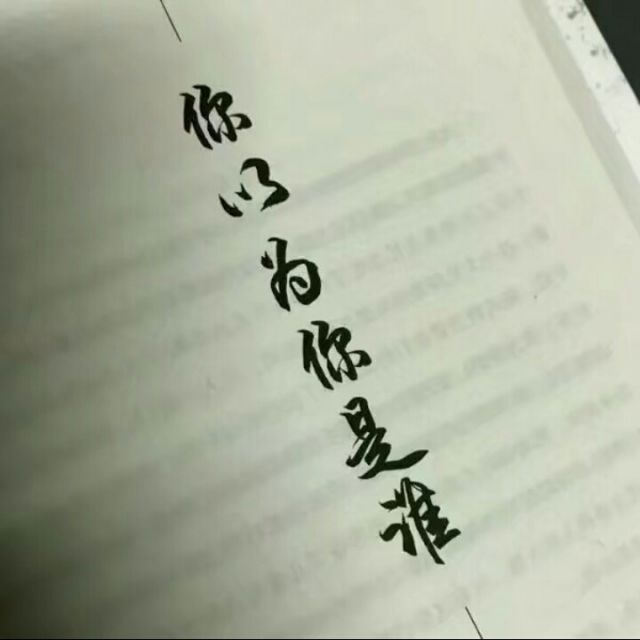 你以为你是谁